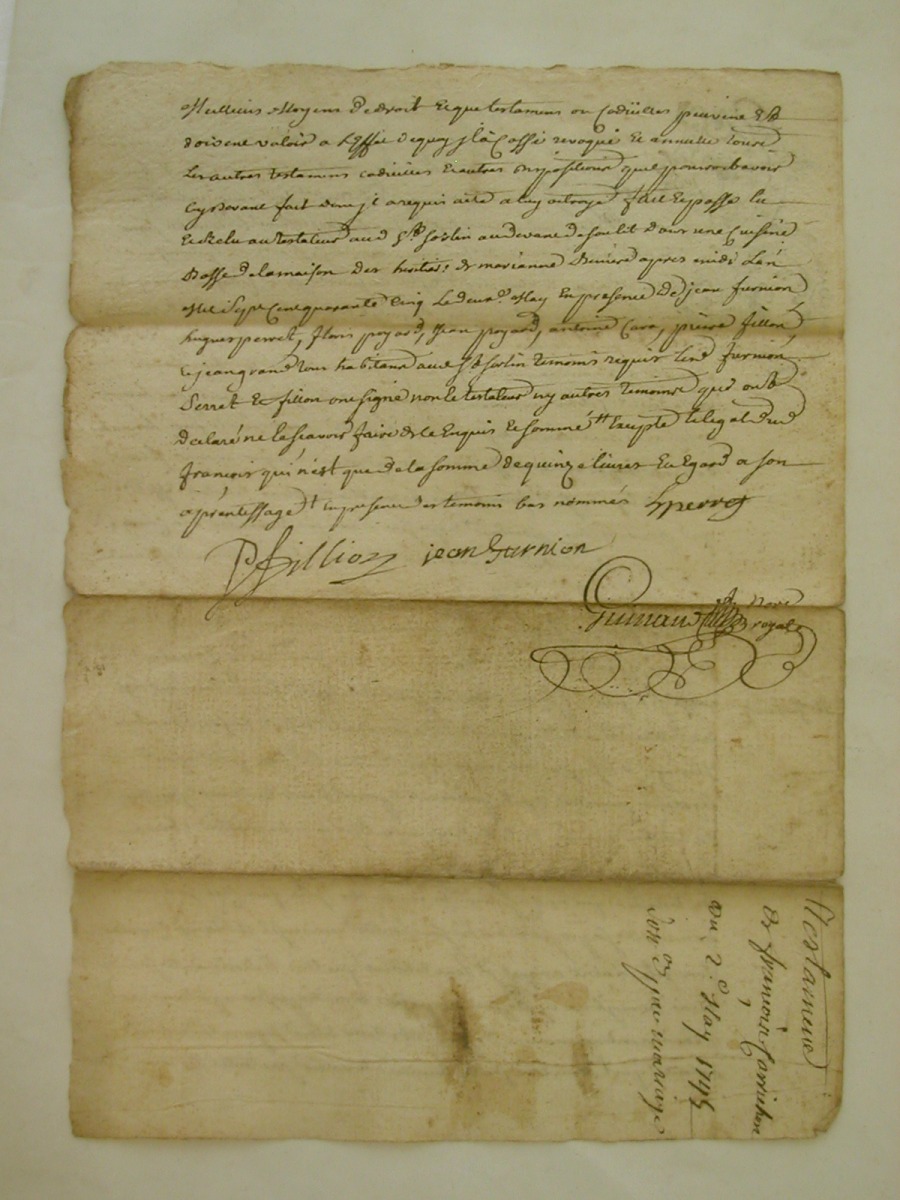 Meilleurs Moyens de droit Et que testamens ou Codicilles peuvent Et
doivent valoir a L'Effet de quoy jl à Cassé revoqué Et annullé tous
Les autres testamens codicilles Et autres dispositions quil pourroit avoir
Cy devant fait dont jl a requis acte a luy octroyé fait Et passé lu
Et relu au testateur aud St Sorlin au devant de son lit dans une Cuisine
Basse de la maison des heritiers de marianne après midi Lan
Mil Sept Cent quarante Cinq Le deux.e May En presence de jean furnion
hugues perret, poyard, Jean poyard, antoine Cara, pierre fillon
Et jean grand tous habitans aud St Sorlin temoins requis Lesd furnion
Perret Et fillon ont signé non le testateur ny autres temoins qui ont
declaré ne le scavoir faire de ce Enquis Et sommé le legat dud
francois qui n'est que de la somme de quinze livres Eu Egard a son
aprentissage En presence des temoins bas nommés hperret
Pfillion jean furnion
Guinand Nore
royal
Testament
de françois
du 2.e May 1745
par mariage